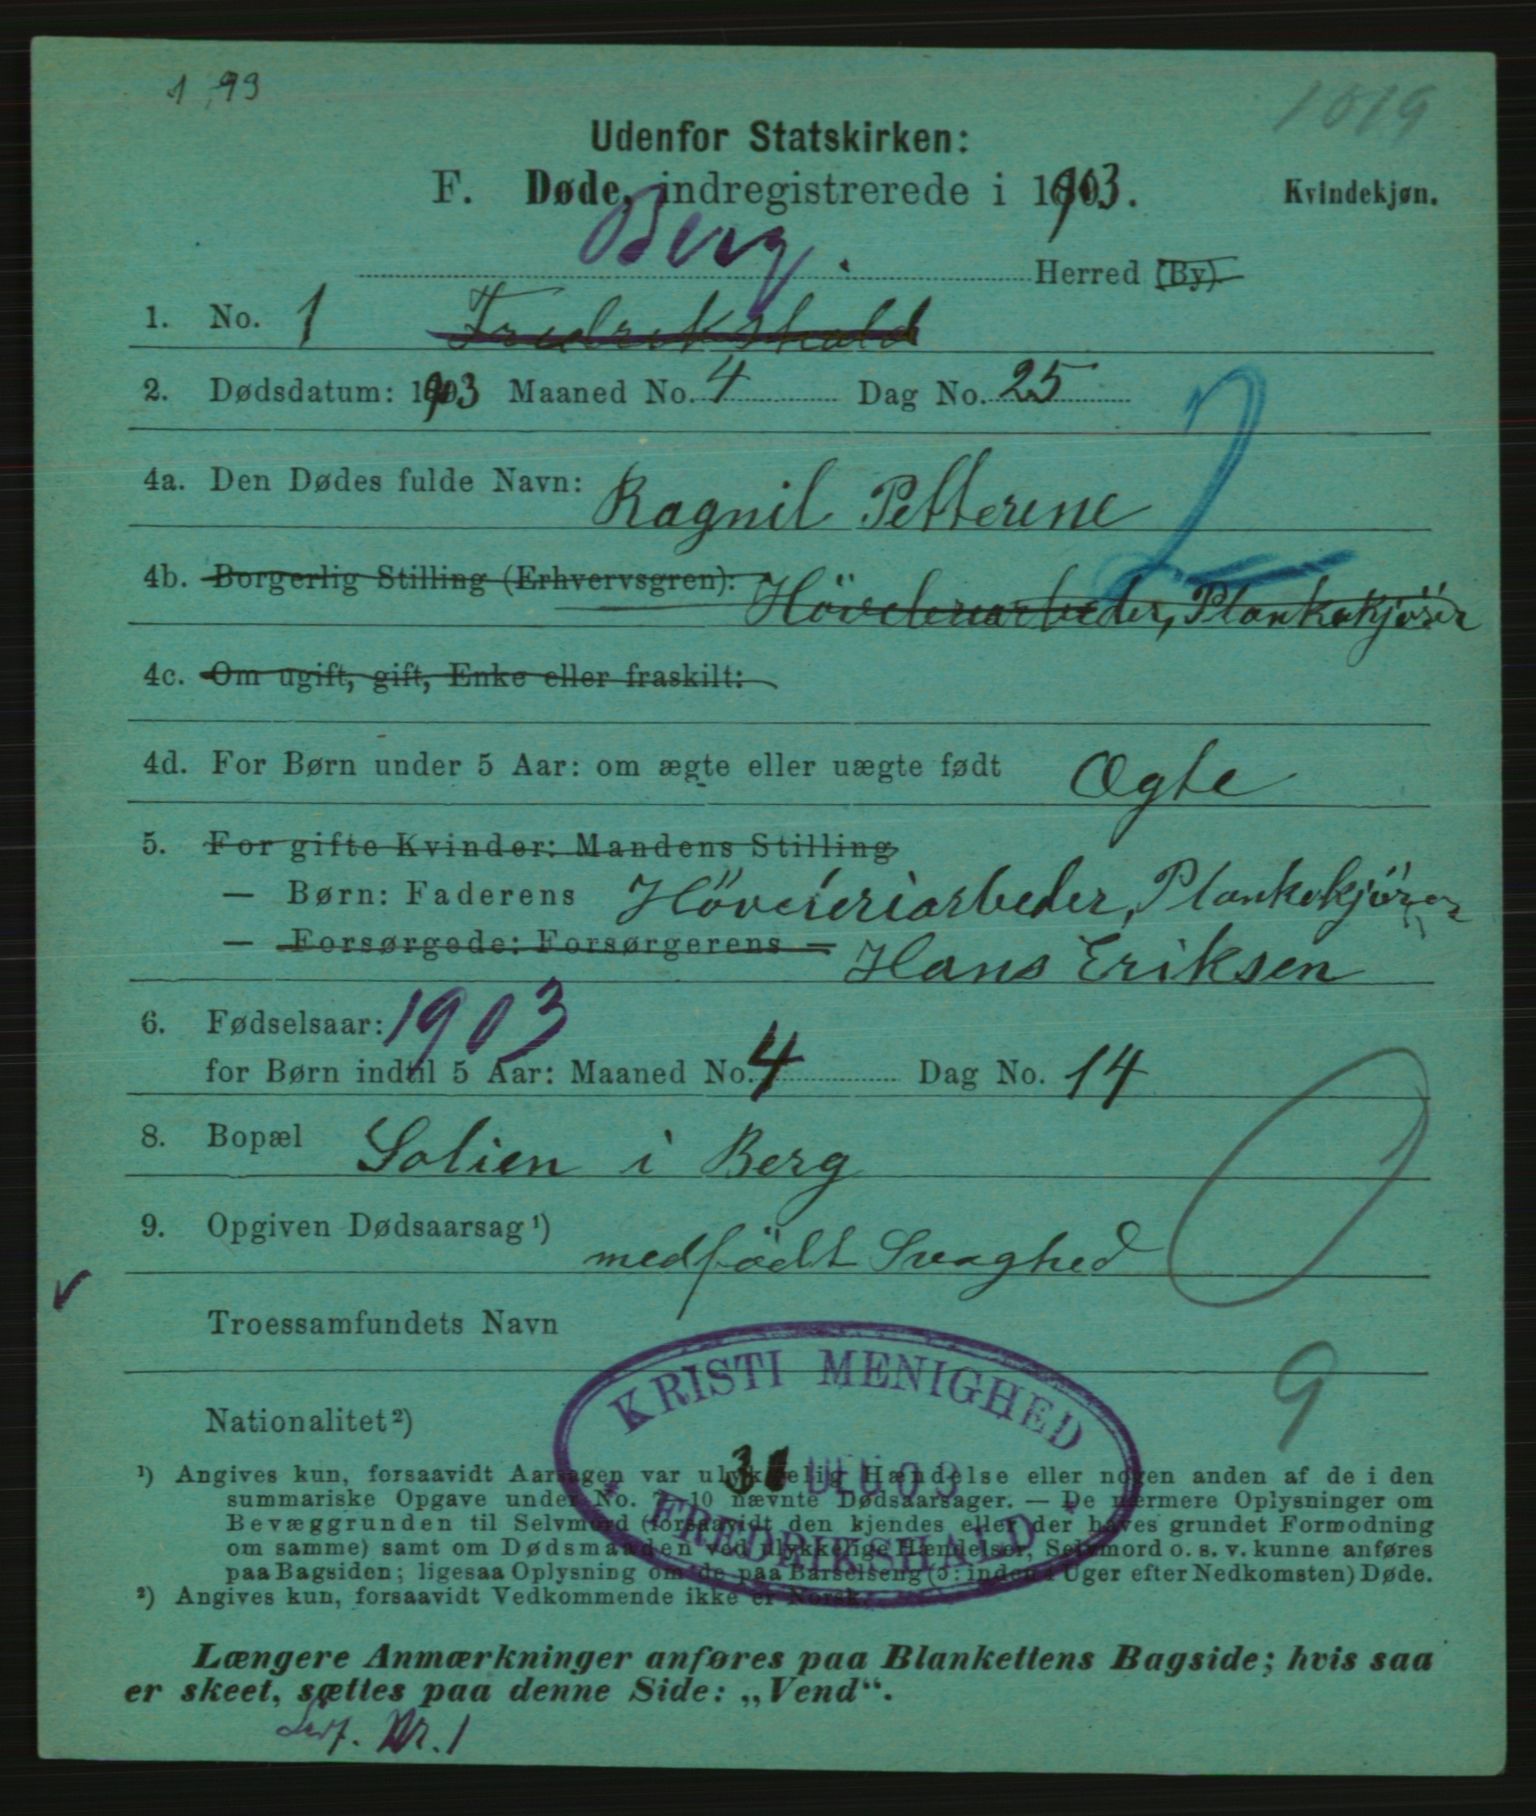 1,93
1019
Udenfor Statskirken:
F. Døde, indregistrerede i 1903. Kvindekjøn.
Berg. Herred (By)
1. No. 1 Fredrikshald
2. Dødsdatum: 1903 Maaned No. 4 Dag No. 25
2
4a. Den Dødes fulde Navn: Ragnil Petterene
4b. Borgerlig Stilling (Erhvervsgren): Höveleriarbeder, Plankekjörer
4c. Om ugift, gift, Enke eller fraskilt:
4d. For Børn under 5 Aar: om ægte eller uægte født Ægte
5. For gifte Kvinder: Mandens Stilling
— Børn: Faderens Höveleriarbeder, Plankekjörer
— Forsørgede: Forsørgerens — Hans Eriksen
6. Fødselsaar: 1903
for Børn indtil 5 Aar: Maaned No. 4 Dag No. 14
8. Bopæl Solien i Berg
9. Opgiven Dødsaarsag ¹) medfödt Svaghed
Troessamfundets Navn
9
Nationalitet ²)
KRISTI MENIGHED
31 DEC 03
FREDRIKSHALD
¹) Angives kun, forsaavidt Aarsagen var ulykkelig Hændelse eller nogen anden af de i den
summariske Opgave under No. 7–10 nævnte Dødsaarsager. — De nærmere Oplysninger om
Bevæggrunden til Selvmord (forsaavidt den kjendes eller der haves grundet Formodning
om samme) samt om Dødsmaaden ved ulykkelige Hændelser, Selvmord o. s. v. kunne anføres
paa Bagsiden; ligesaa Oplysning om de paa Barselseng (ɔ: inden 4 Uger efter Nedkomsten) Døde.
²) Angives kun, forsaavidt Vedkommende ikke er Norsk.
Længere Anmærkninger anføres paa Blankettens Bagside; hvis saa
er skeet, sættes paa denne Side: „Vend“.
Nr. 1